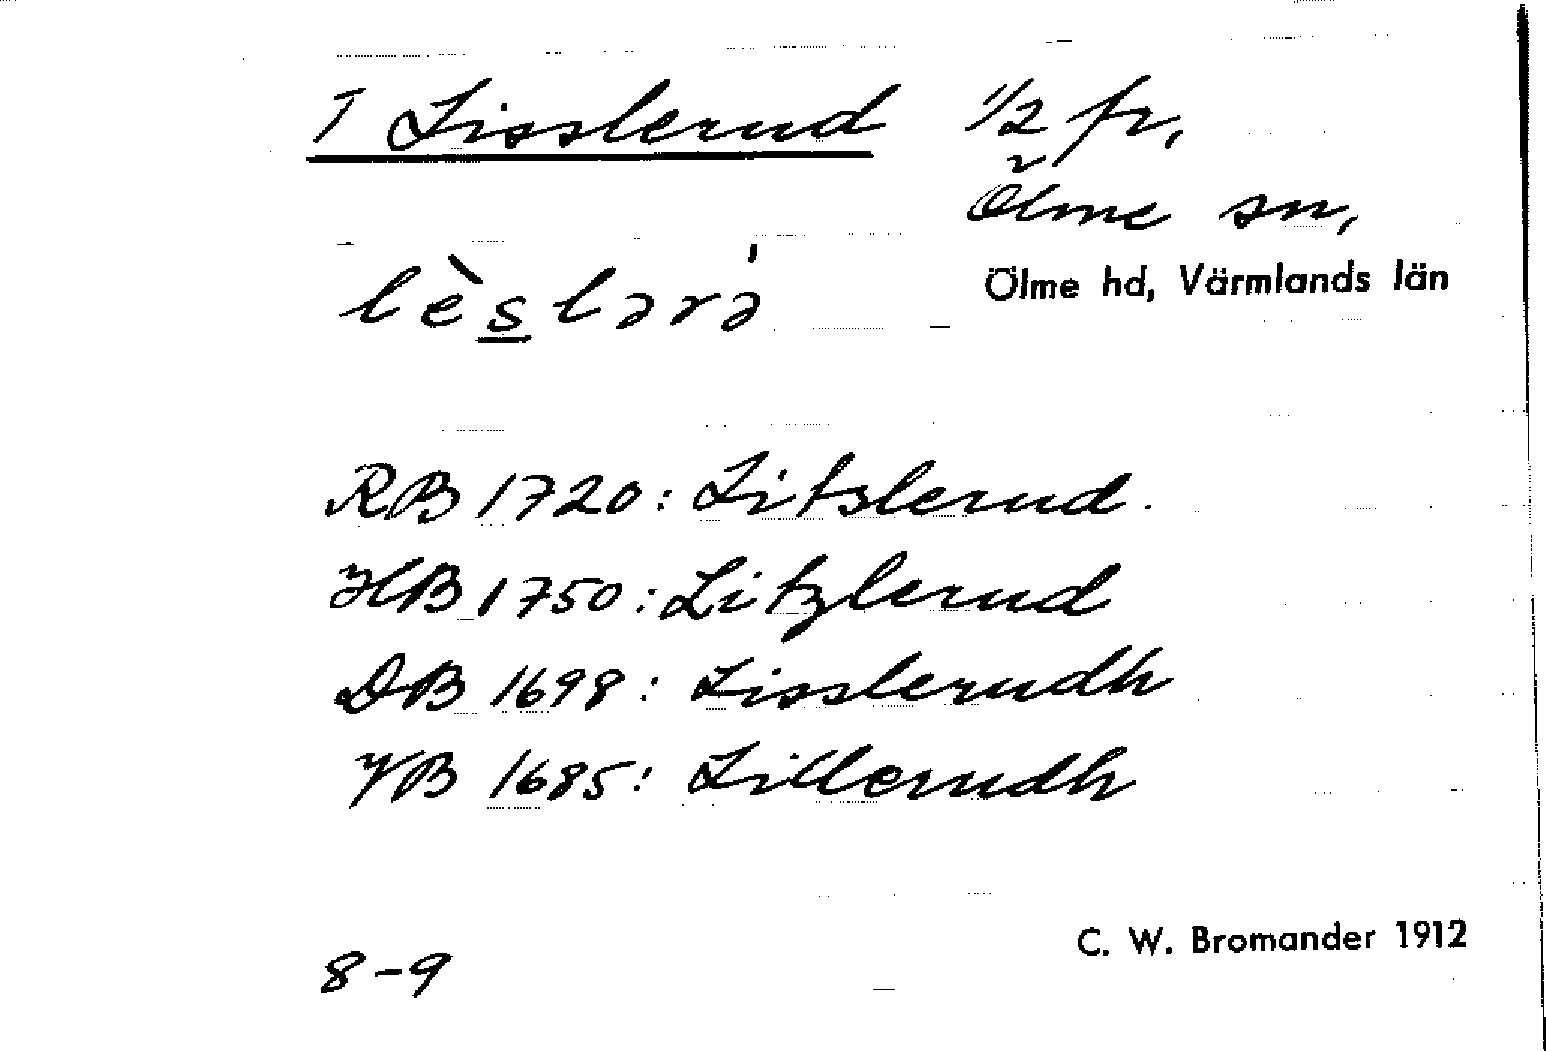 T Lisslerud 1/2 fr,
Ölme sn,
Ölme hd, Värmlands län
lès̲lərə̍
RB 1720: Litslerud.
HB 1750: Litzlerud
DB 1698: Lisslerudh
VB 1685: Lillerudh
C. W. Bromander 1912
8-9